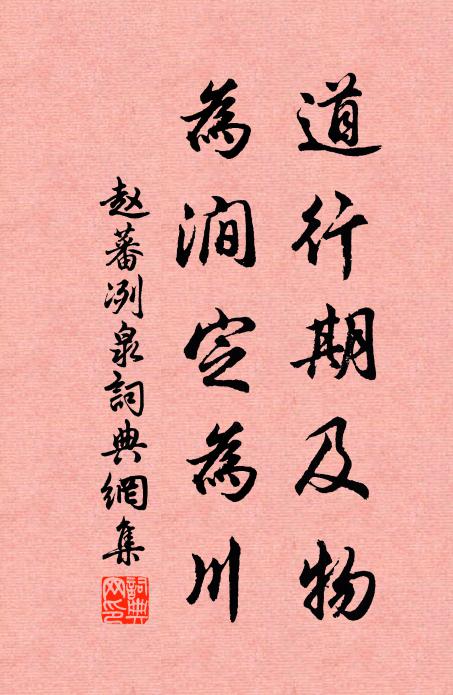 道行期及物
為澗定為川
赵蕃冽泉詞典網集
詞典網印